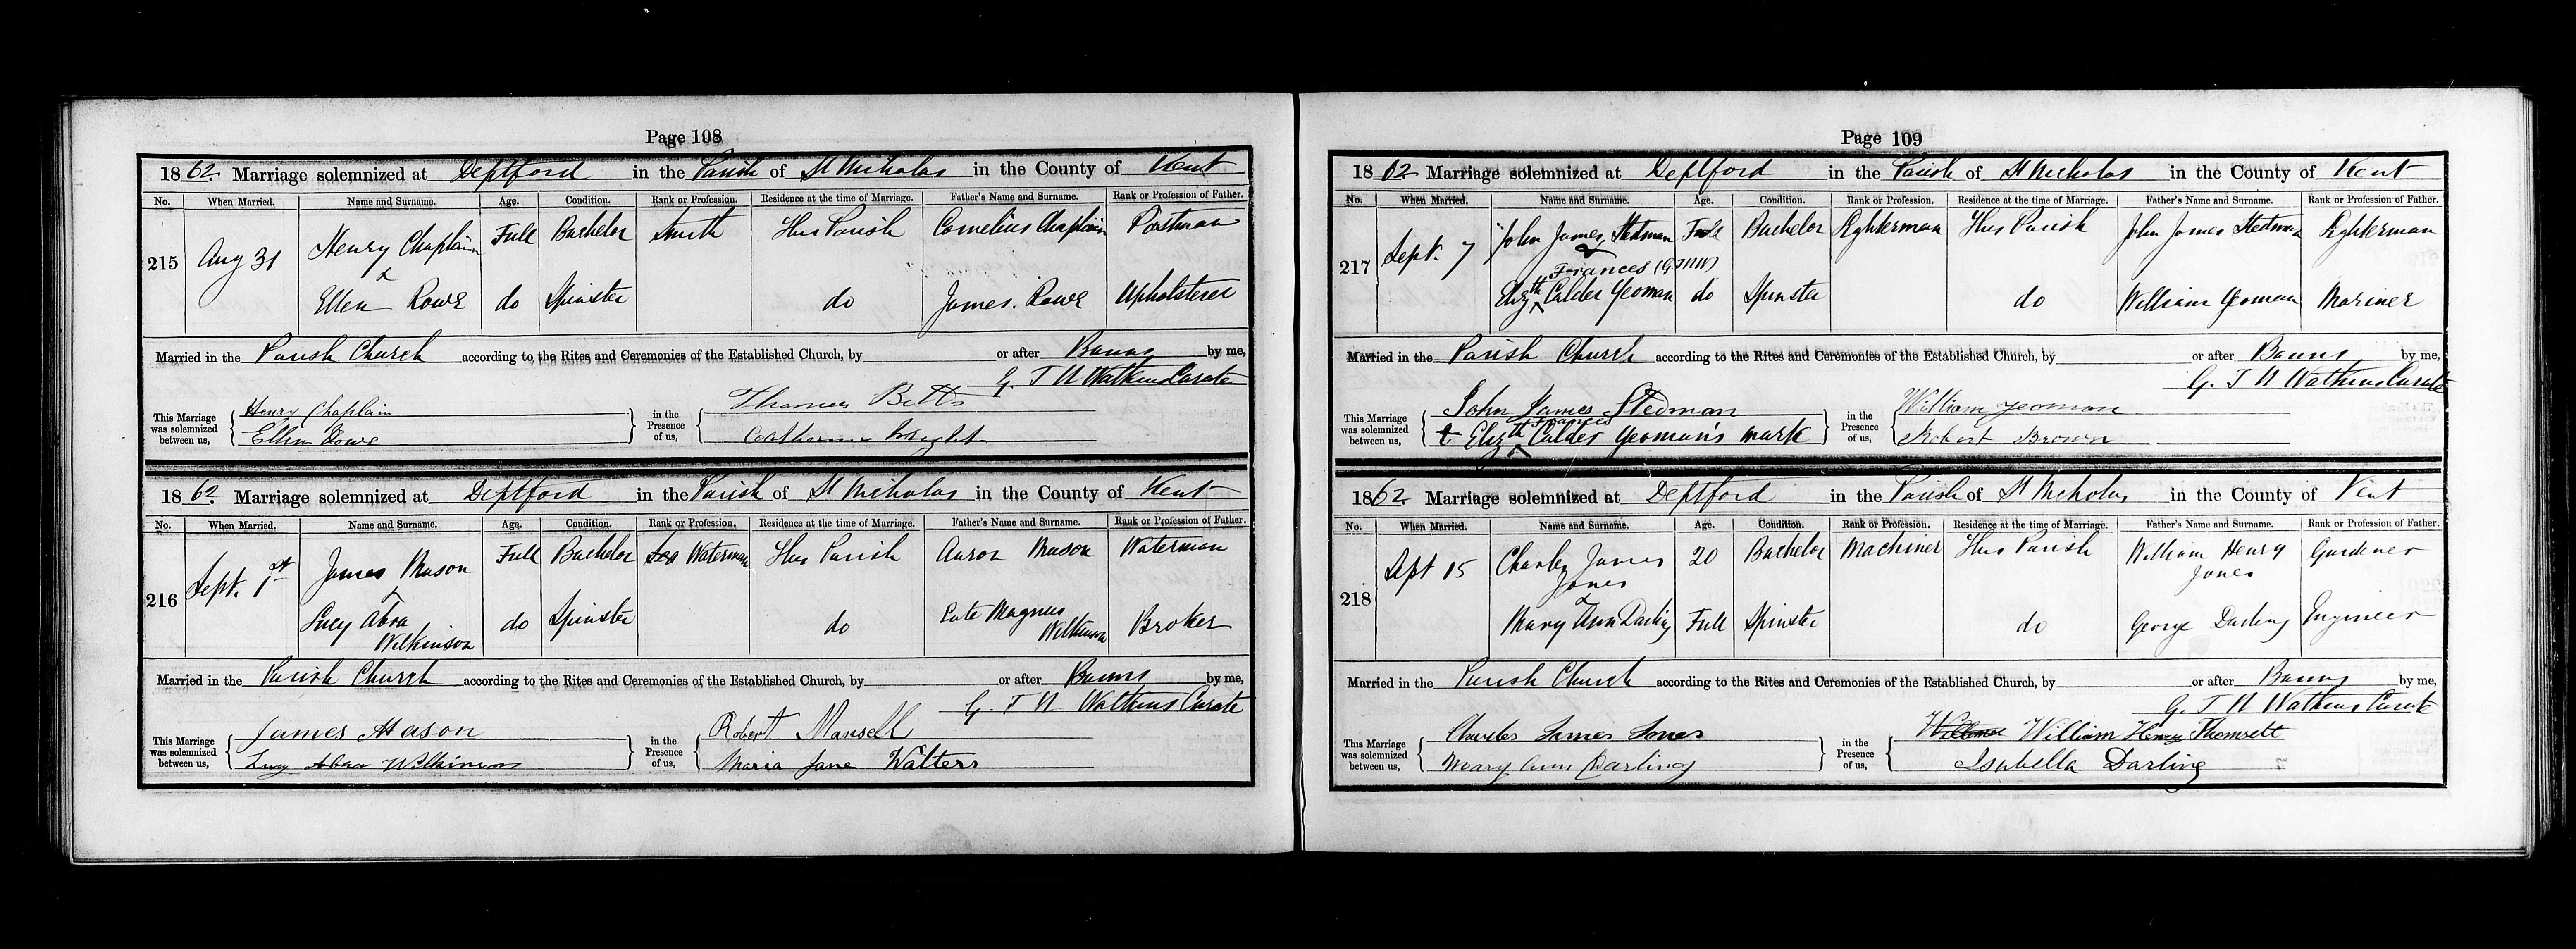 Page 108
1862 Marriage solemnized at Deptford in the Parish of St Nicholas in the County of Kent
No. When Married. Name and Surname. Age. Condition. Rank or Profession. Residence at the time of Marriage. Father's Name and Surname. Rank or Profession of Father.
215 Aug 31 Henry Chaplain Full Bachelor Smith This Parish Cornelius Chaplain Postman
&
Ellen Rowe do Spinster do James Rowe Upholsterer
Married in the Parish Church according to the Rites and Ceremonies of the Established Church, by or after Banns by me,
G. T. N Watkins Curate
This Marriage was solemnized between us, Henry Chaplain in the Presence of us, Thomas Betts
Ellen Rowe Catherine
1862 Marriage solemnized at Deptford in the Parish of St Nicholas in the County of Kent
No. When Married. Name and Surname. Age. Condition. Rank or Profession. Residence at the time of Marriage. Father's Name and Surname. Rank or Profession of Father.
216 Sept. 1st James Mason Full Bachelor Waterman This Parish Aaron Mason Waterman
&
Lucy Abra Wilkinson do Spinster do Late Magnus Wilkinson Broker
Married in the Parish Church according to the Rites and Ceremonies of the Established Church, by or after Banns by me,
G. T. N Watkins Curate
This Marriage was solemnized between us, James Mason in the Presence of us, Robert Mansell
Lucy Abra Wilkinson Maria Jane Walters
Page 109
1862 Marriage solemnized at Deptford in the Parish of St Nicholas in the County of Kent
No. When Married. Name and Surname. Age. Condition. Rank or Profession. Residence at the time of Marriage. Father's Name and Surname. Rank or Profession of Father.
217 Sept. 7 John James Stedman Full Bachelor Lighterman This Parish John James Stedman Lighterman
&
Frances (G.T.N.W)
Elizth Calder Yeoman do Spinster do William Yeoman Mariner
Married in the Parish Church according to the Rites and Ceremonies of the Established Church, by or after Banns by me,
G. T. N Watkins Curate
This Marriage was solemnized between us, John James Stedman in the Presence of us, William Yeoman
Frances
Elizth Calder Yeoman's mark Robert Brown
1862 Marriage solemnized at Deptford in the Parish of St Nicholas in the County of Kent
No. When Married. Name and Surname. Age. Condition. Rank or Profession. Residence at the time of Marriage. Father's Name and Surname. Rank or Profession of Father.
218 Sept 15 Charles James Jones 20 Bachelor Machiner This Parish William Henry Jones Gardener
&
Mary Ann Darling Full Spinster do George Darling Engineer
Married in the Parish Church according to the Rites and Ceremonies of the Established Church, by or after Banns by me,
G. T. N Watkins Curate
This Marriage was solemnized between us, Charles James Jones in the Presence of us, William Henry Thomsett
Mary Ann Darling Isabella Darling